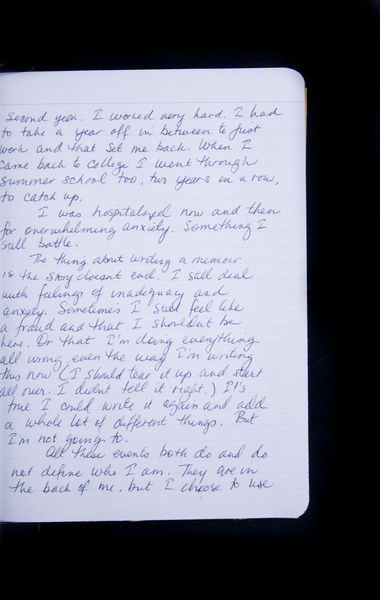 second year. I worked very hard. I had
to take a year off in between to just
work and that set me back. When I
came back to college I went through
summer school too, two years in a row,
to catch up.
I was hospitalized now and then
for overwhelming anxiety. Something I
still battle.
The thing about writing a memoir
is the story doesnt end. I still deal
with feelings of inadequacy and
anxiety. Sometimes I still feel like
a fraud and that I shouldnt be
here. Or that I'm doing everything
all wrong, even the way I'm writing
this now (I should tear it up and start
all over. I didn't tell it right.) It's
true I could write it again and add
a whole lot of different things. But
I'm not going to.
All these events both do and do
not define who I am. They are in
the back of me, but I choose to use